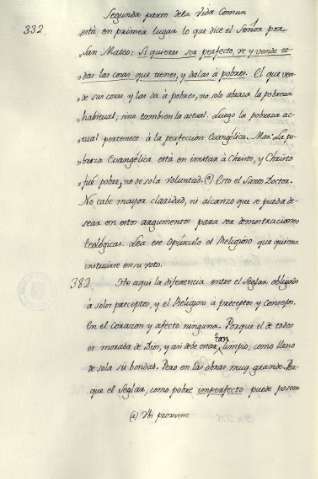 Segunda parte dela Vida Comun
332
está en primera lugar lo que dice el Señor por
San Mateo: Si quieres ser perfecto, ve y vende to-
das las cosas que tienes, y dalas á pobres. El que ven-
de sus cosas y las da á pobres, no solo abraza la pobreza
habitual, sino tambien la actual. Luego la pobreza ac-
tual pertenece á la perfección Evangélica. Mas: La po-
breza Evangélica está en imitar á Christo, y Christo
fué pobre, no de sola voluntad. (@) Esto el Santo Doctor.
No cabe mayor claridad, ni alcanzo que se pueda de-
sear en otro argumento para ser demonstraciones
teológicas. Lea ese Opúsculo el Religioso que quisiere
instruirse en su voto.
382 He aqui la diferencia entre el Seglar obligado
á solos preceptos, y el Religioso á preceptos y Consejos.
En el corazon y afecto ninguna. Porque el de todos
es morada de Dios, y asi debe estar tan limpio, como lleno
de sola su bondad. Pero en las obras muy grande. Por-
que el Seglar, como pobre imperfecto puede poseer
@ Ibi proxime